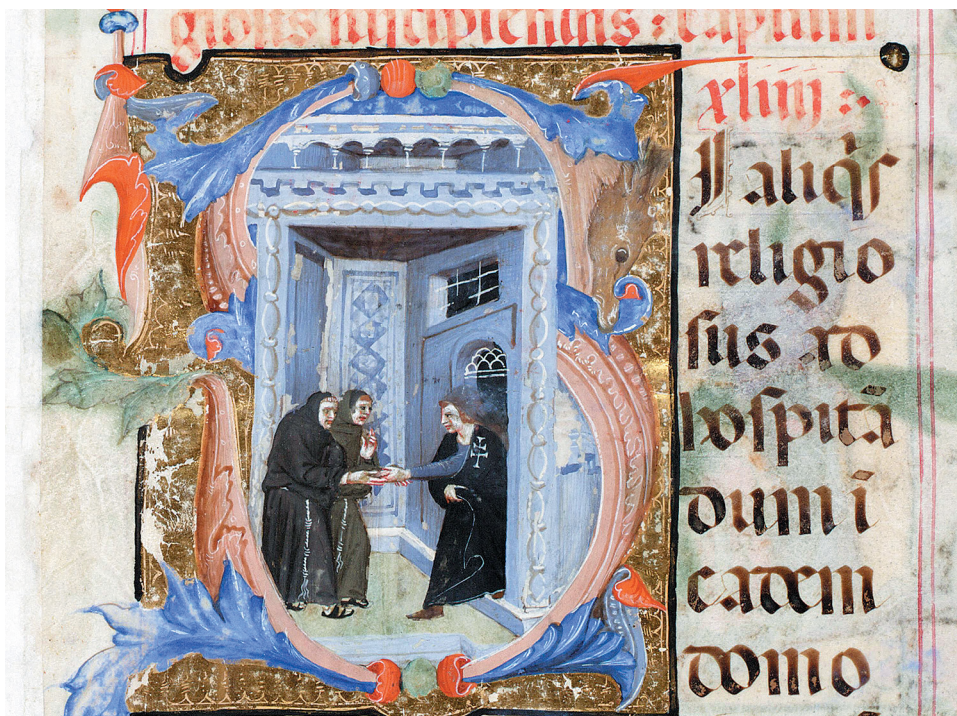 giosis suscipiendis : capitulum
xliiij :~
SI aliq̃s
religio
sus ad
hospitā
dum i
eadem
domo